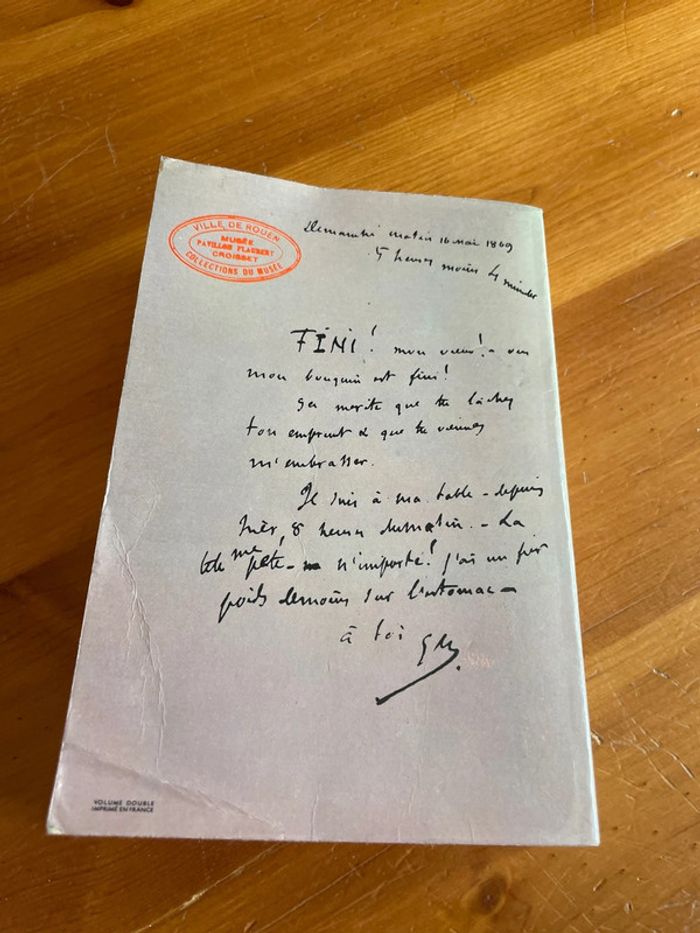 VILLE DE ROUEN
MUSÉE
PAVILLON FLAUBERT
CROISSET
COLLECTIONS DU MUSÉE
matin 16 Mai 1869
5 heures moins 4 minutes
FINI! mon vieux! - oui
mon bouquin est fini!
ça mérite que tu lâches
ton emprunt & que tu viennes
m'embrasser.
Je suis à ma table - depuis
hier, 8 heures du matin. - La
tête me pète - n'importe! j'ai un fier
poids de moins sur l'estomac -
à toi
VOLUME DOUBLE
IMPRIMÉ EN FRANCE